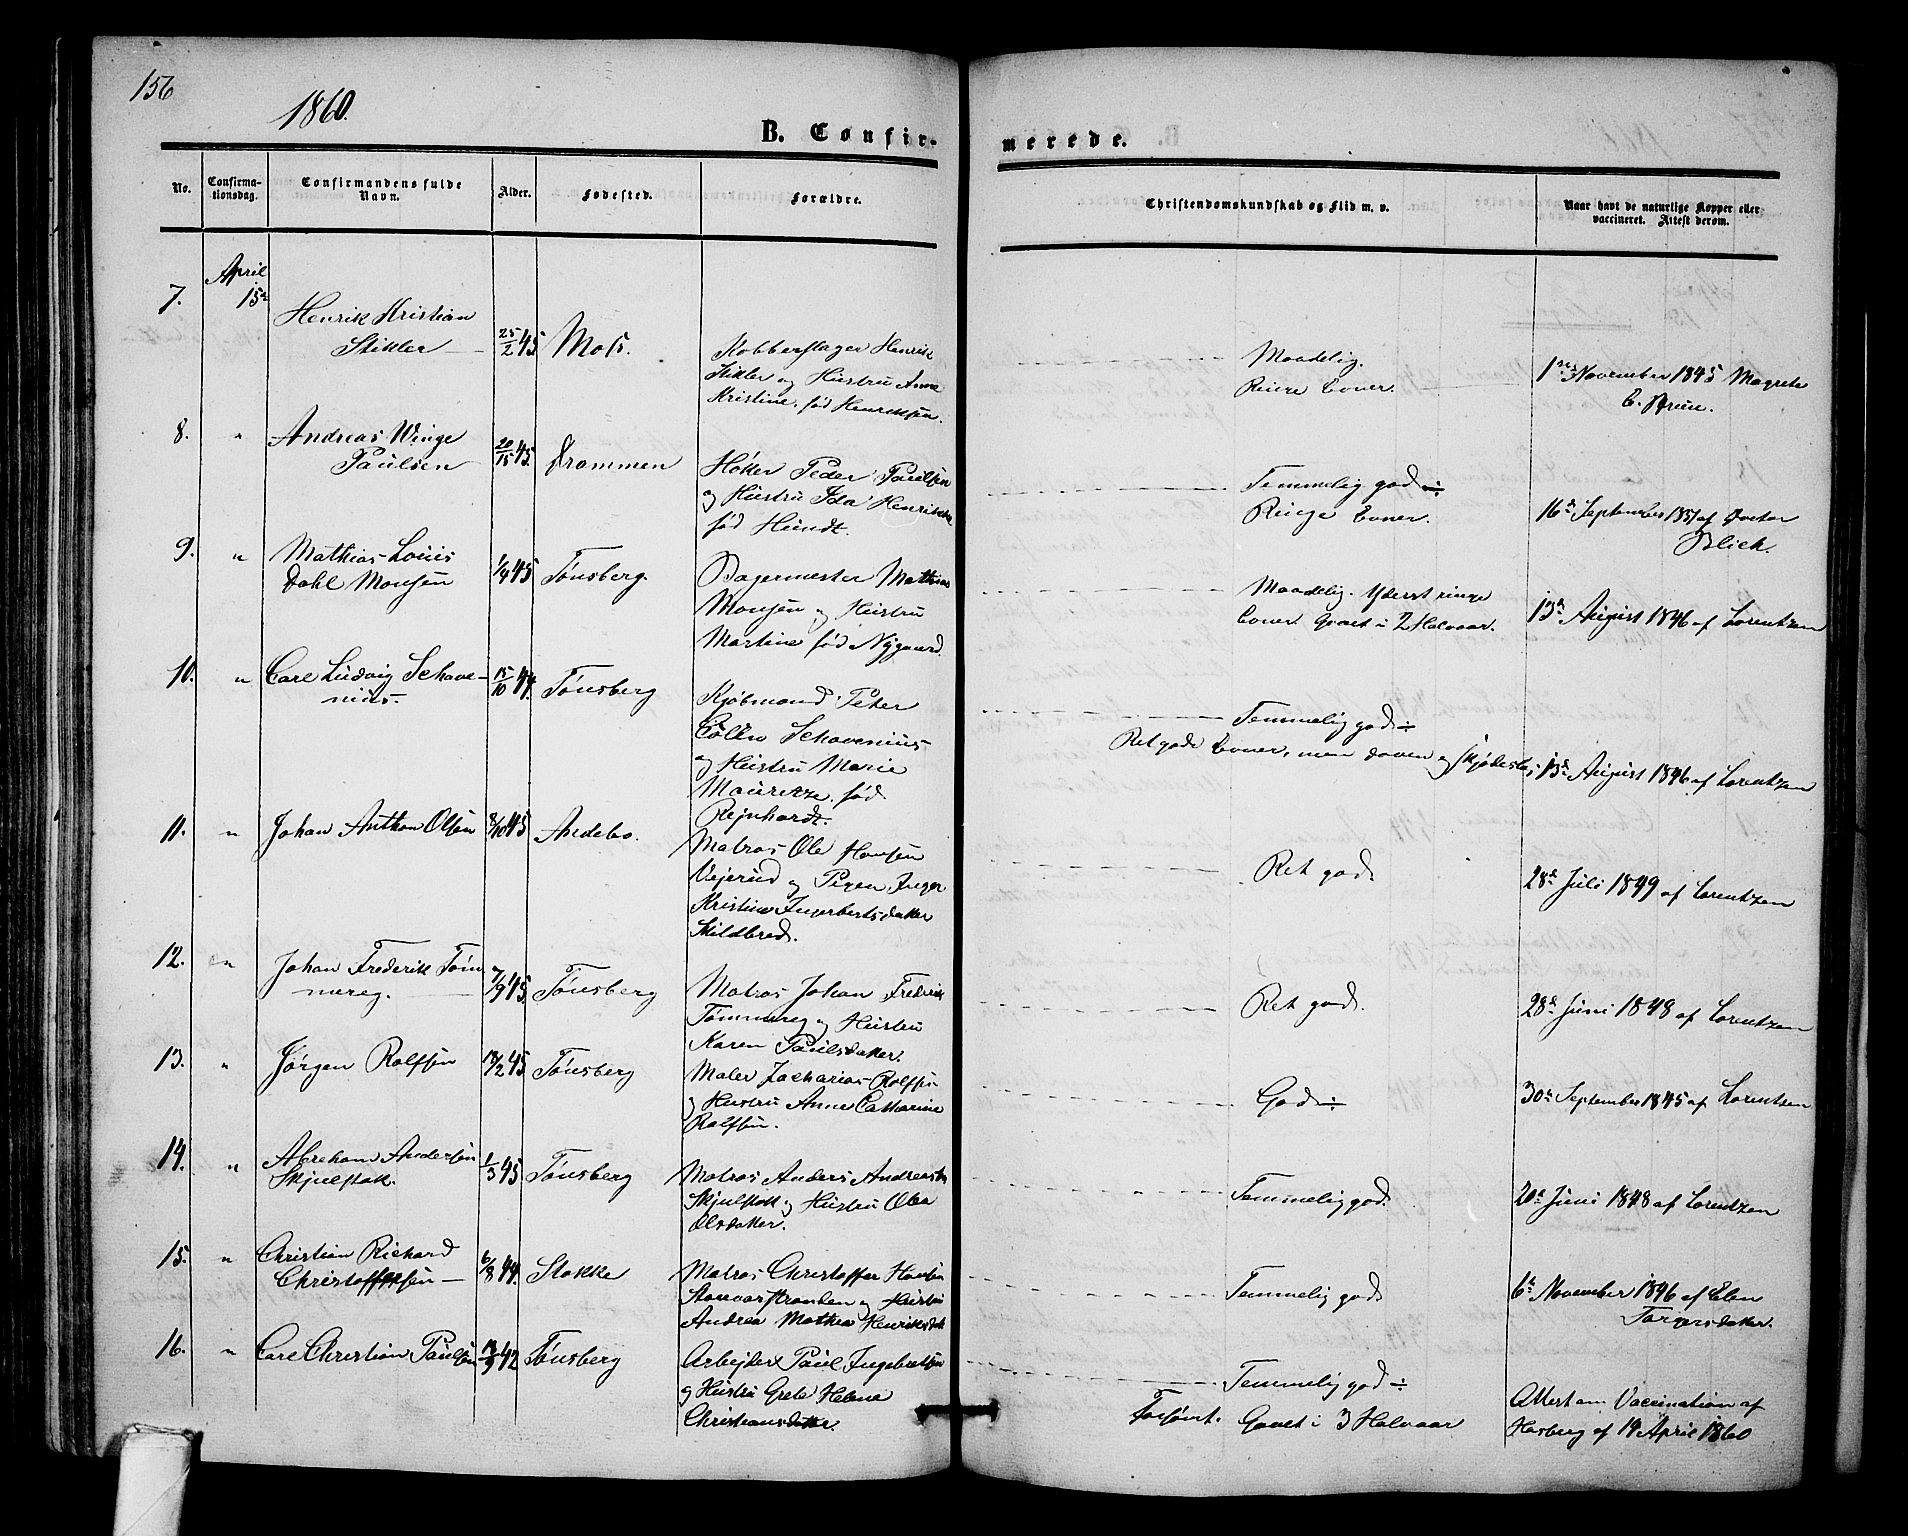 156
1860.
B. Confirmerede.
No.
Confirmationsdag.
Confirmandens fulde Navn.
Alder.
Fødested.
Forældre.
Christendomskundskab og Flid m. v.
Naar havt de naturlige Kopper eller vaccineret. Attest derom.
April
7. 15de
Henrik Kristian
Stikler 25/2 45 Moss.
Kobberslager Henrik
Stikler og Hustru Anne
Kristine, fød Henriksen.
Maadelig.
Ringe Evner.
1ste November 1845 Magrete
C. Bruu.
8. " Andreas Winge
Paulsen 45. Drammen
Høker Peder Paulsen
og Hustru Ida Henrikke
fød Hundt.
Temmelig god ÷
Ringe Evner.
16de September 1851 af Doctor
Blich.
9. " Mathias Louis
Dahl Monsen 1/9 45 Tønsberg.
Bagermester Mathias
Monsen og Hustru
Martine fød Nygaard.
Maadelig. Yderst ringe
Evner. Gaaet i 2 Halvaar.
13de August 1846 af Lorentzen
10. " Carl Ludvig Schavenius. 15/10 44. Tønsberg
Kjøbmand Peter
Schavenius
og Hustru Marie
fød
Rejnhardt.
Temmelig god ÷
Ret gode Evner, men doven og skjødesløs
13de August 1846 af Lorentzen
11. " Johan Anthon Olsen 8/10 45 Andebo.
Matros Ole Hansen
Vejerud og Pigen Inger
Kristine Ingerbertsdatter
Skildbred.
Ret god
28de Juli 1849 af Lorentzen
12. " Johan Frederik Tømmereg. 7/9 45. Tønsberg
Matros Johan Frederik
Tømmereg og Hustru
Karen Paulsdatter.
Ret god.
28de Juni 1848 af Lorentzen
13. " Jørgen Rolfsen 45 Tønsberg
Maler Zacharias Rolfsen
og Hustru Anne Catharine
Rolfsen.
God ÷
30te September 1845 af Lorentzen
14. " Abraham Andersen
Skjulstok. 1/3 45 Tønsberg
Matros Anders Andreasen
Skjulstok og Hustru Olea
Olsdatter.
Temmelig god.
20de Juni 1848 af Lorentzen
15. " Christian Richard
Christoffersen 6/8 44. Stokke
Matros Christoffer Hansen
og Hustru
Andrea Mathea Henriksdatter
Temmelig god
6te November 1846 af Elen
Torgersdatter.
16. " Carl Christian Paulsen 42 Tønsberg
Arbejder Paul Ingebretsen
og Hustru Grete Helene
Christiansdatter.
Temmelig god ÷
Forsømt. Gaaet i 3 Halvaar
Attest om Vaccination af
Hasberg af 19 April 1860